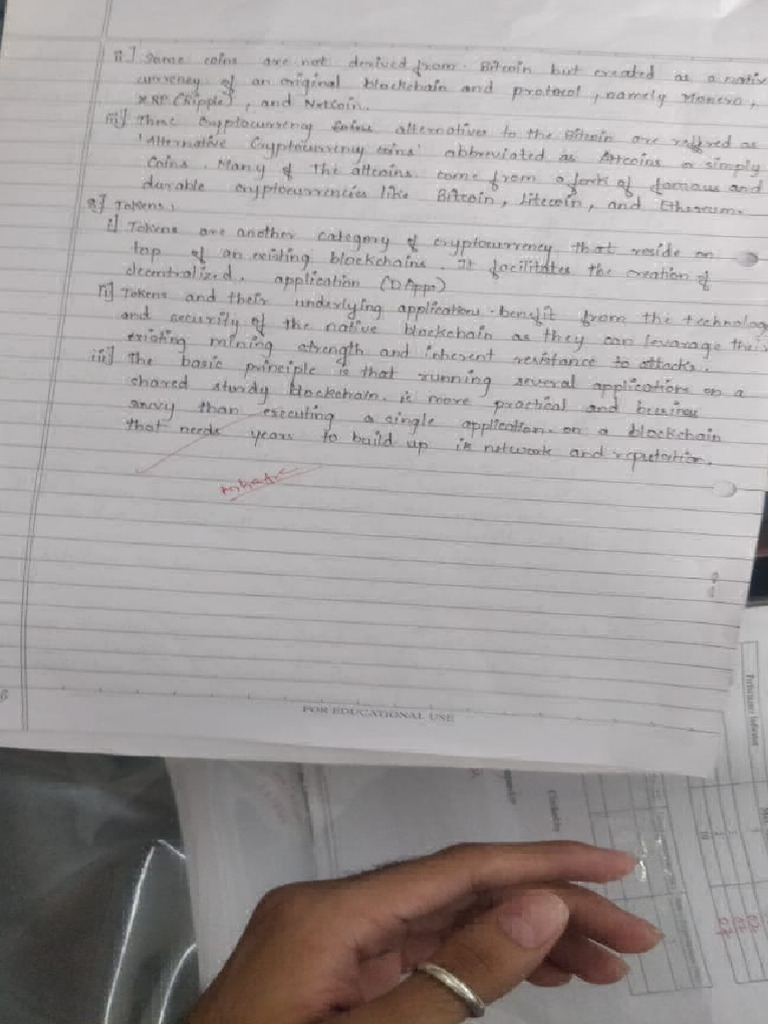 ii] Some coins are not derived from Bitcoin but created as a nativ
currency of an original blockchain and protocol, namely Monero,
XRP (Ripple), and Nxtcoin.
iii] These cryptocurrency coins alternatives to the Bitcoin are reffred as
'Alternative Cryptocurrency coins' abbreviated as Altcoins or simply
Coins. Many of the altcoins come from a fork of famous and
durable cryptocurrencies like Bitcoin, Litecoin, and Ethereum.
2] Tokens:
i] Tokens are another category of cryptocurrency that reside on
top of an existing blockchains. It facilitates the creation of
decentralized application (DApps)
ii] Tokens and their underlying applications benefit from the technolog
and security of the native blockchain as they can leverage their
existing mining strength and inherent resistance to attacks.
iii] The basic principle is that running several applications on a
shared sturdy blockchain is more practical and business
savvy than executing a single application on a blockchain
that needs years to build up its network and reputation.
FOR EDUCATIONAL USE
Performance Indicator